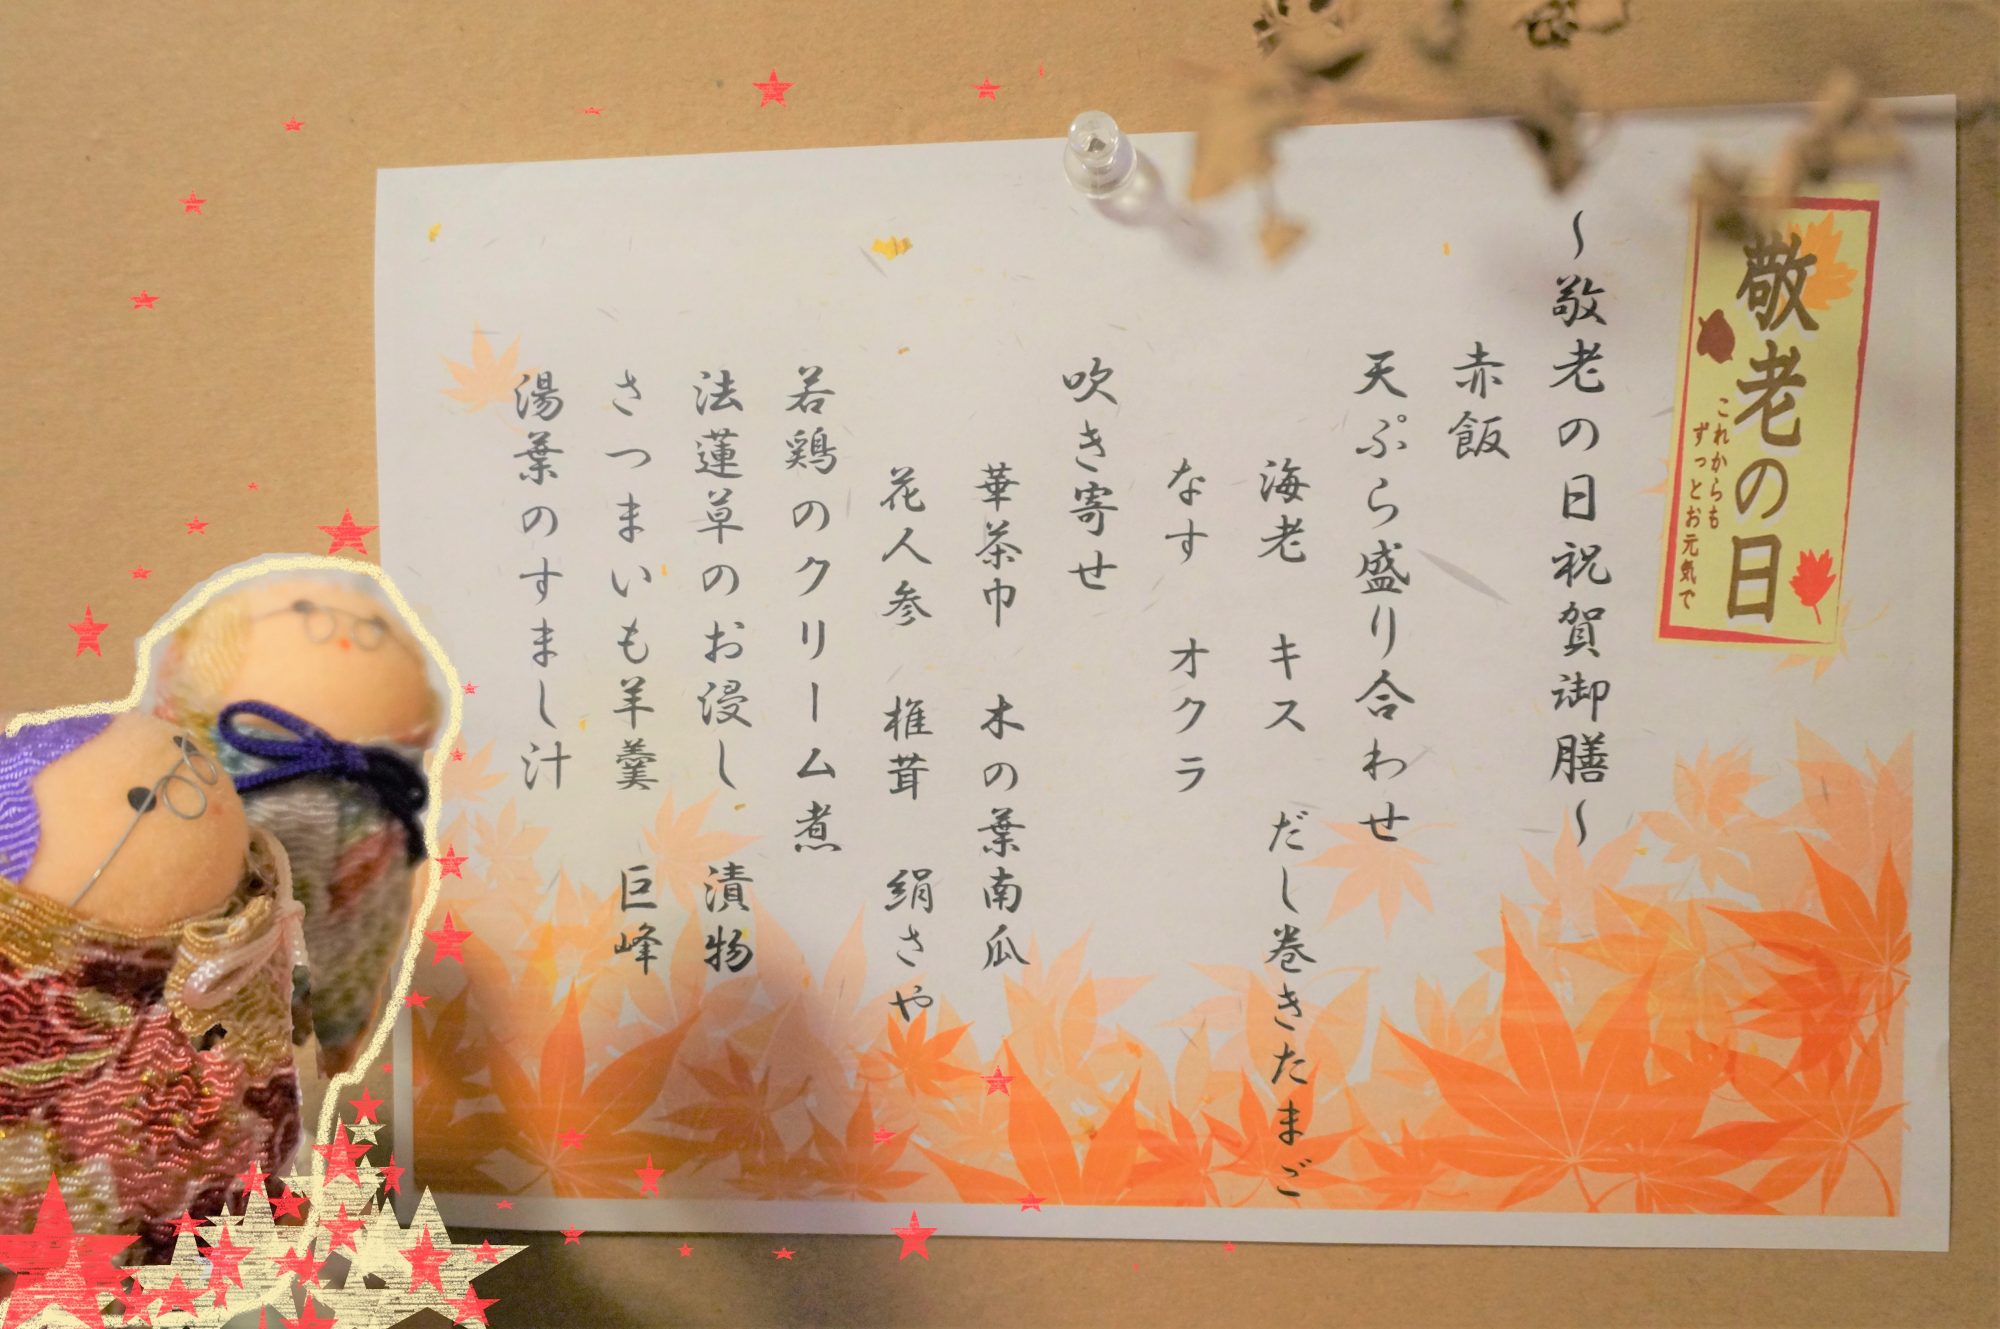 敬老の日
これからも
ずっとお元気で
～敬老の日祝賀御膳～
赤飯
天ぷら盛り合わせ
海老　キス　だし巻きたまご
なす　オクラ
吹き寄せ
華茶巾　木の葉南瓜
花人参　椎茸　絹さや
若鶏のクリーム煮
法蓮草のお浸し　漬物
さつまいも羊羹　巨峰
湯葉のすまし汁